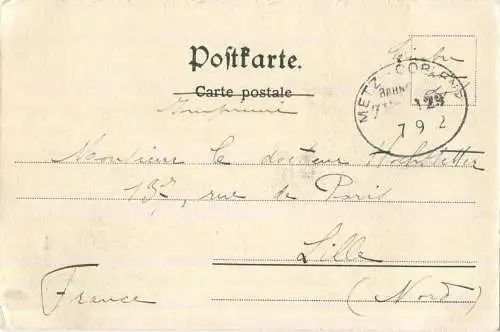 Postkarte.
Carte postale
Imprimé
METZ - 
BAHN
123
7 9 2
Monsieur le docteur Hochstetter
rue de Paris
Lille
France (Nord)